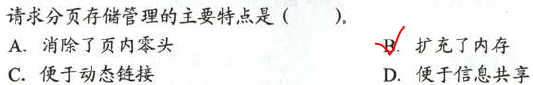 请求分页存储管理的主要特点是（　　）。
A．消除了页内零头　　B．扩充了内存
C．便于动态链接　　D．便于信息共享